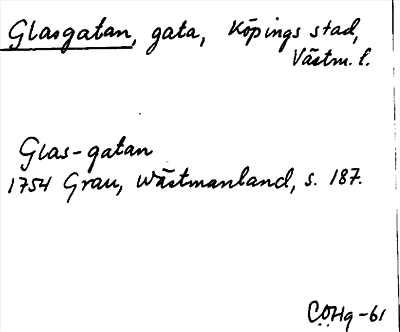 Glasgatan, gata, Köpings stad,
Västm. l.
Glas-gatan
1754 Grau, Wästmanland, s. 187.
COHg-61